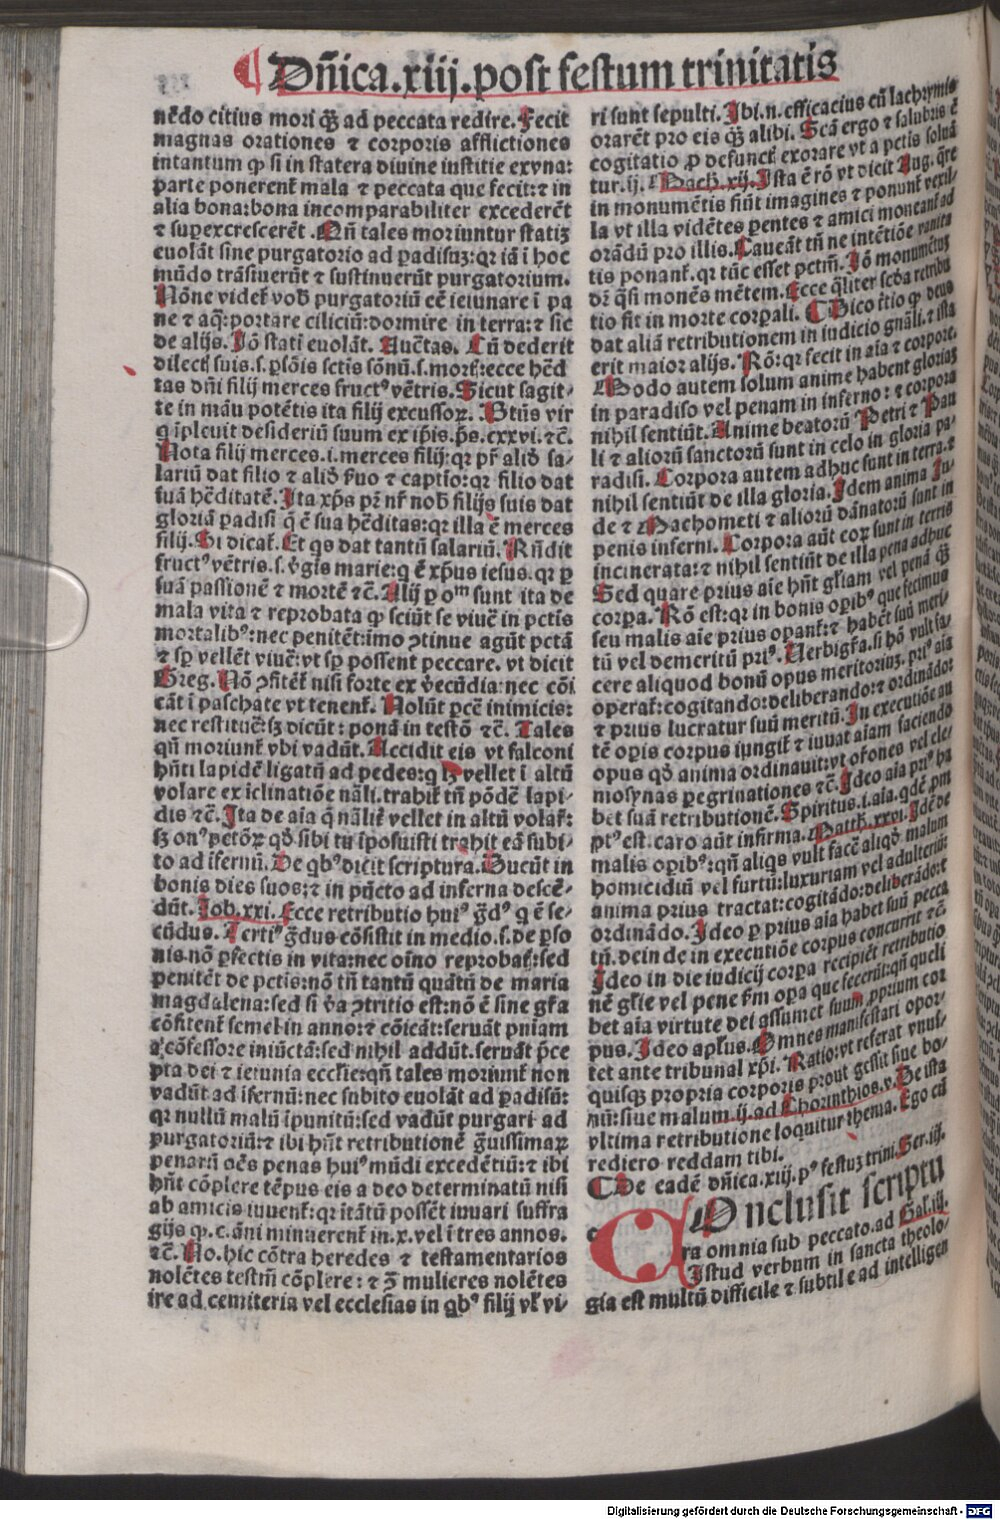 ¶ Dñica.xiij.post festum trinitatis
nẽdo citius mori q̃ꝫ ad peccata redire. Fecit
magnas orationes ⁊ corporis afflictiones
intantum ꝙ si in statera diuine iustitie exvna:
parte ponerent̃ mala ⁊ peccata que fecit:⁊ in
alia bona:bona incomparabiliter excederẽt
⁊ suꝑexcrescerẽt. Qñ tales moriuntur statiꝫ
euolãt sine purgatorio ad ꝑadisuꝫ:qꝛ iã ĩ hoc
mũdo trãsiuerũt ⁊ sustinuerũt purgatorium.
Nõne videt̃ vob̃ purgatoriũ eẽ ieiunare ĩ pa
ne ⁊ aq̃:portare ciliciũ:dormire in terra:⁊ sic
de alijs. Jõ stati euolãt. Auctas. Cũ dederit
dilectis suis.s.ꝑsõis sctis sõnũ.s.mort̃:ecce hẽd
tas dñi filij merces fructꝰ vẽtris. Sicut sagit-
te in mãu potẽtis ita filij excussoꝝ. Btũs vir
q ĩpleuit desideriũ suum ex ip̃is.p̃s.cxxvi.⁊c̃.
Nota filij merces.i.merces filij:qꝛ pr̃ aliq̃ sa-
lariũ dat filio ⁊ aliq̃ ẜuo ⁊ captio:qꝛ filio dat
suã hẽditatẽ. Ita xp̃s pr̃ nr̃ nob̃ filijs suis dat
gloriã ꝑadisi q̃ ẽ sua hẽditas:qꝛ illa ẽ merces
filij. Si dicat̃. Et qs dat tantũ salariũ. Rñdit
fructꝰ vẽtris.s.ṽgĩs marie:q ẽ xp̃us iesus.qꝛ ꝑ
suã passionẽ ⁊ mortẽ ⁊c̃. Alij ꝑ oĩm sunt ita de
mala vita ⁊ reprobata ꝙ sciũt se viuẽ in pctis
mortalibꝰ:nec penitẽt:imo ꝯtinue agũt pctã
⁊ sꝑ vellẽt viuẽ:vt sꝑ possent peccare. vt dicit
Greg. Nõ ꝯfitẽt̃ nisi forte ex ṽecũdia:nec cõi
cãt ĩ paschate vt tenent̃. Nolũt ꝑcẽ inimicis:
nec restituẽ:sꝫ dicũt: ponã in testõ ⁊c̃. Tales
qñ moriunt̃ vbi vadũt. Accidit eis vt falconi
hñti lapidẽ ligatũ ad pedes:q lꝫ vellet ĩ altũ
volare ex iclinatiõe nãli.trahit̃ tñ põdẽ lapi-
dis ⁊c̃. Ita de aĩa q̃ nãlit̃ vellet in altũ volar̃:
sꝫ onꝰ pctõꝝ qd̃ sibi tu ĩposuisti trahit eã subi-
to ad ĩfernũ. De qbꝰ dicit scriptura. Ducũt in
bonis dies suos:⁊ in pũcto ad inferna descẽ-
dũt. Job.xxi. Ecce retributio huiꝰ g̃dꝰ q ẽ se-
cũdus. Tertiꝰ g̃dus cõsistit in medio.s.de ꝑso
nis.nõ ꝑfectis in vita:nec oĩno reprobat̃:sed
penitẽt de pctis:nõ tñ tantũ quãtũ de maria
magdalena:sed si ṽa ꝯtritio est:nõ ẽ sine gr̃a
cõfitent̃ semel in anno:⁊ cõicãt:seruãt pniam
a cõfessore iniũctã:sed nihil addũt.seruãt p̃ce
pta dei ⁊ ieiunia eccl̃ie:qñ tales moriunt̃ non
vadũt ad ĩfernũ:nec subito euolãt ad ꝑadisũ:
qꝛ nullũ malũ ĩpunitũ:sed vadũt purgari ad
purgatoriũ:⁊ ibi hñt retributionẽ g̃uissimaꝝ
penarũ oẽs penas huiꝰ mũdi excedẽtiũ:⁊ ibi
hñt cõplere tẽpus eis a deo determinatũ nisi
ab amicis iuuent̃:qꝛ itãtũ possẽt iuuari suffra
gijs ꝙ.c.ãni minuerent̃ in.x.vel ĩ tres annos.
⁊c̃. No.hic cõtra heredes ⁊ testamentarios
nolẽtes testm̃ cõplere: ⁊ ꝯ̃ mulieres nolẽtes
ire ad cemiteria vel ecclesias in qbꝰ filij vl̃ vi-
ri sunt sepulti. Ibi.n.efficacius cũ lachrymis
orarẽt pro eis q̃ꝫ alibi. Scã ergo ⁊ salubris ẽ
cogitatio ꝓ defunct̃ exorare vt a pctis soluã
tur.ij. Mach.xij. Ista ẽ rõ vt dicit Aug. q̃re
in monumẽtis fiũt imagines ⁊ ponunt̃ vexil-
la vt illa vidẽtes ꝑentes ⁊ amici moneant̃ ad
orãdũ pro illis. Caueãt tñ ne intẽtiõe vanita
tis ponant̃.qꝛ tũc esset pctm̃. Jõ monumẽtuꝫ
dr̃ q̃si monẽs mẽtem. Ecce q̃liter scd̃a retribu
tio fit in morte corꝑali. ¶ Dico t̃tio ꝙ deus
dat aliã retributionem in iudicio gñali.⁊ ista
erit maior alijs. Rõ:qꝛ fecit in aĩa ⁊ corpore.
Modo autem solum anime habent gloriaꝫ
in paradiso vel penam in inferno: ⁊ corpora
nihil sentiũt. Anime beatorũ Petri ⁊ Pau
li ⁊ aliorũ sanctorũ sunt in celo in gloria pa-
radisi. Corpora autem adhuc sunt in terra.⁊
nihil sentiũt de illa gloria. Idem anima Ju-
de ⁊ Machometi ⁊ aliorũ dãnatorũ sunt in
penis inferni. Corpora aũt eoꝝ sunt in terris
incinerata:⁊ nihil sentiũt de illa pena adhuc
Sed quare prius aĩe hñt gl̃iam vel penã q̃ꝫ
corꝑa. Rõ est:qꝛ in bonis oꝑibꝰ que fecimus
seu malis aĩe prius oꝑant̃:⁊ habẽt suũ meri-
tũ vel demeritũ priꝰ. Verbigr̃a.si hõ vult fa-
cere aliquod bonũ opus meritoriuꝫ.priꝰ aĩa
oꝑat̃:cogitando:deliberando:⁊ ordinãdo:
⁊ prius lucratur suũ meritũ. In executiõe aũ
tẽ oꝑis corpus iungit̃ ⁊ iuuat aĩam faciendo
opus qd̃ anima ordinauit:vt oĩones vel ele-
mosynas peregrinationes ⁊c̃. Ideo aĩa priꝰ ha
bet suã retributionẽ. Spiritus.i.aĩa.qdẽ ꝓm
ptꝰ est. caro aũt infirma. Matth̃.xxvi. Idẽ de
malis oꝑibꝰ:qñ aliqs vult facẽ aliqd̃ malum
homicidiũ vel furtũ:luxuriam vel adulteriũ:
anima prius tractat:cogitãdo:deliberãdo:⁊
ordinãdo. Ideo ꝑ prius aĩa habet suũ pecca
tũ.dein de in executiõe corpus concurrit ⁊c̃.
Ideo in die iudicij corꝑa recipiẽt retributio
nẽ gl̃ie vel pene ẜm oꝑa que fecerũt:qñ queli
bet aĩa virtute dei assumet suum ꝓprium cor
pus. Ideo apl̃us. Omnes manifestari opor-
tet ante tribunal xp̃i. Ratio:vt referat vnuſ-
quisqꝫ propria corporis prout gessit siue bo-
nũ:siue malum.ij.ad Chorinthios.v. De ista
vltima retributione loquitur thema. Ego cũ
rediero reddam tibi.
¶ De eadẽ dñica.xiij.pꝰ festuꝫ trini. Ser.iij.
COnclusit scriptu
ra omnia sub peccato.ad Gal.iij.
Istud verbum in sancta theolo-
gia est multũ difficile ⁊ subtile ad intelligen
Digitalisierung gefördert durch die Deutsche Forschungsgemeinschaft - DFG